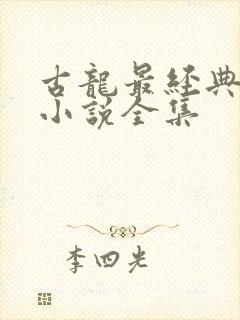 古龍最經典
小說全集
李四光